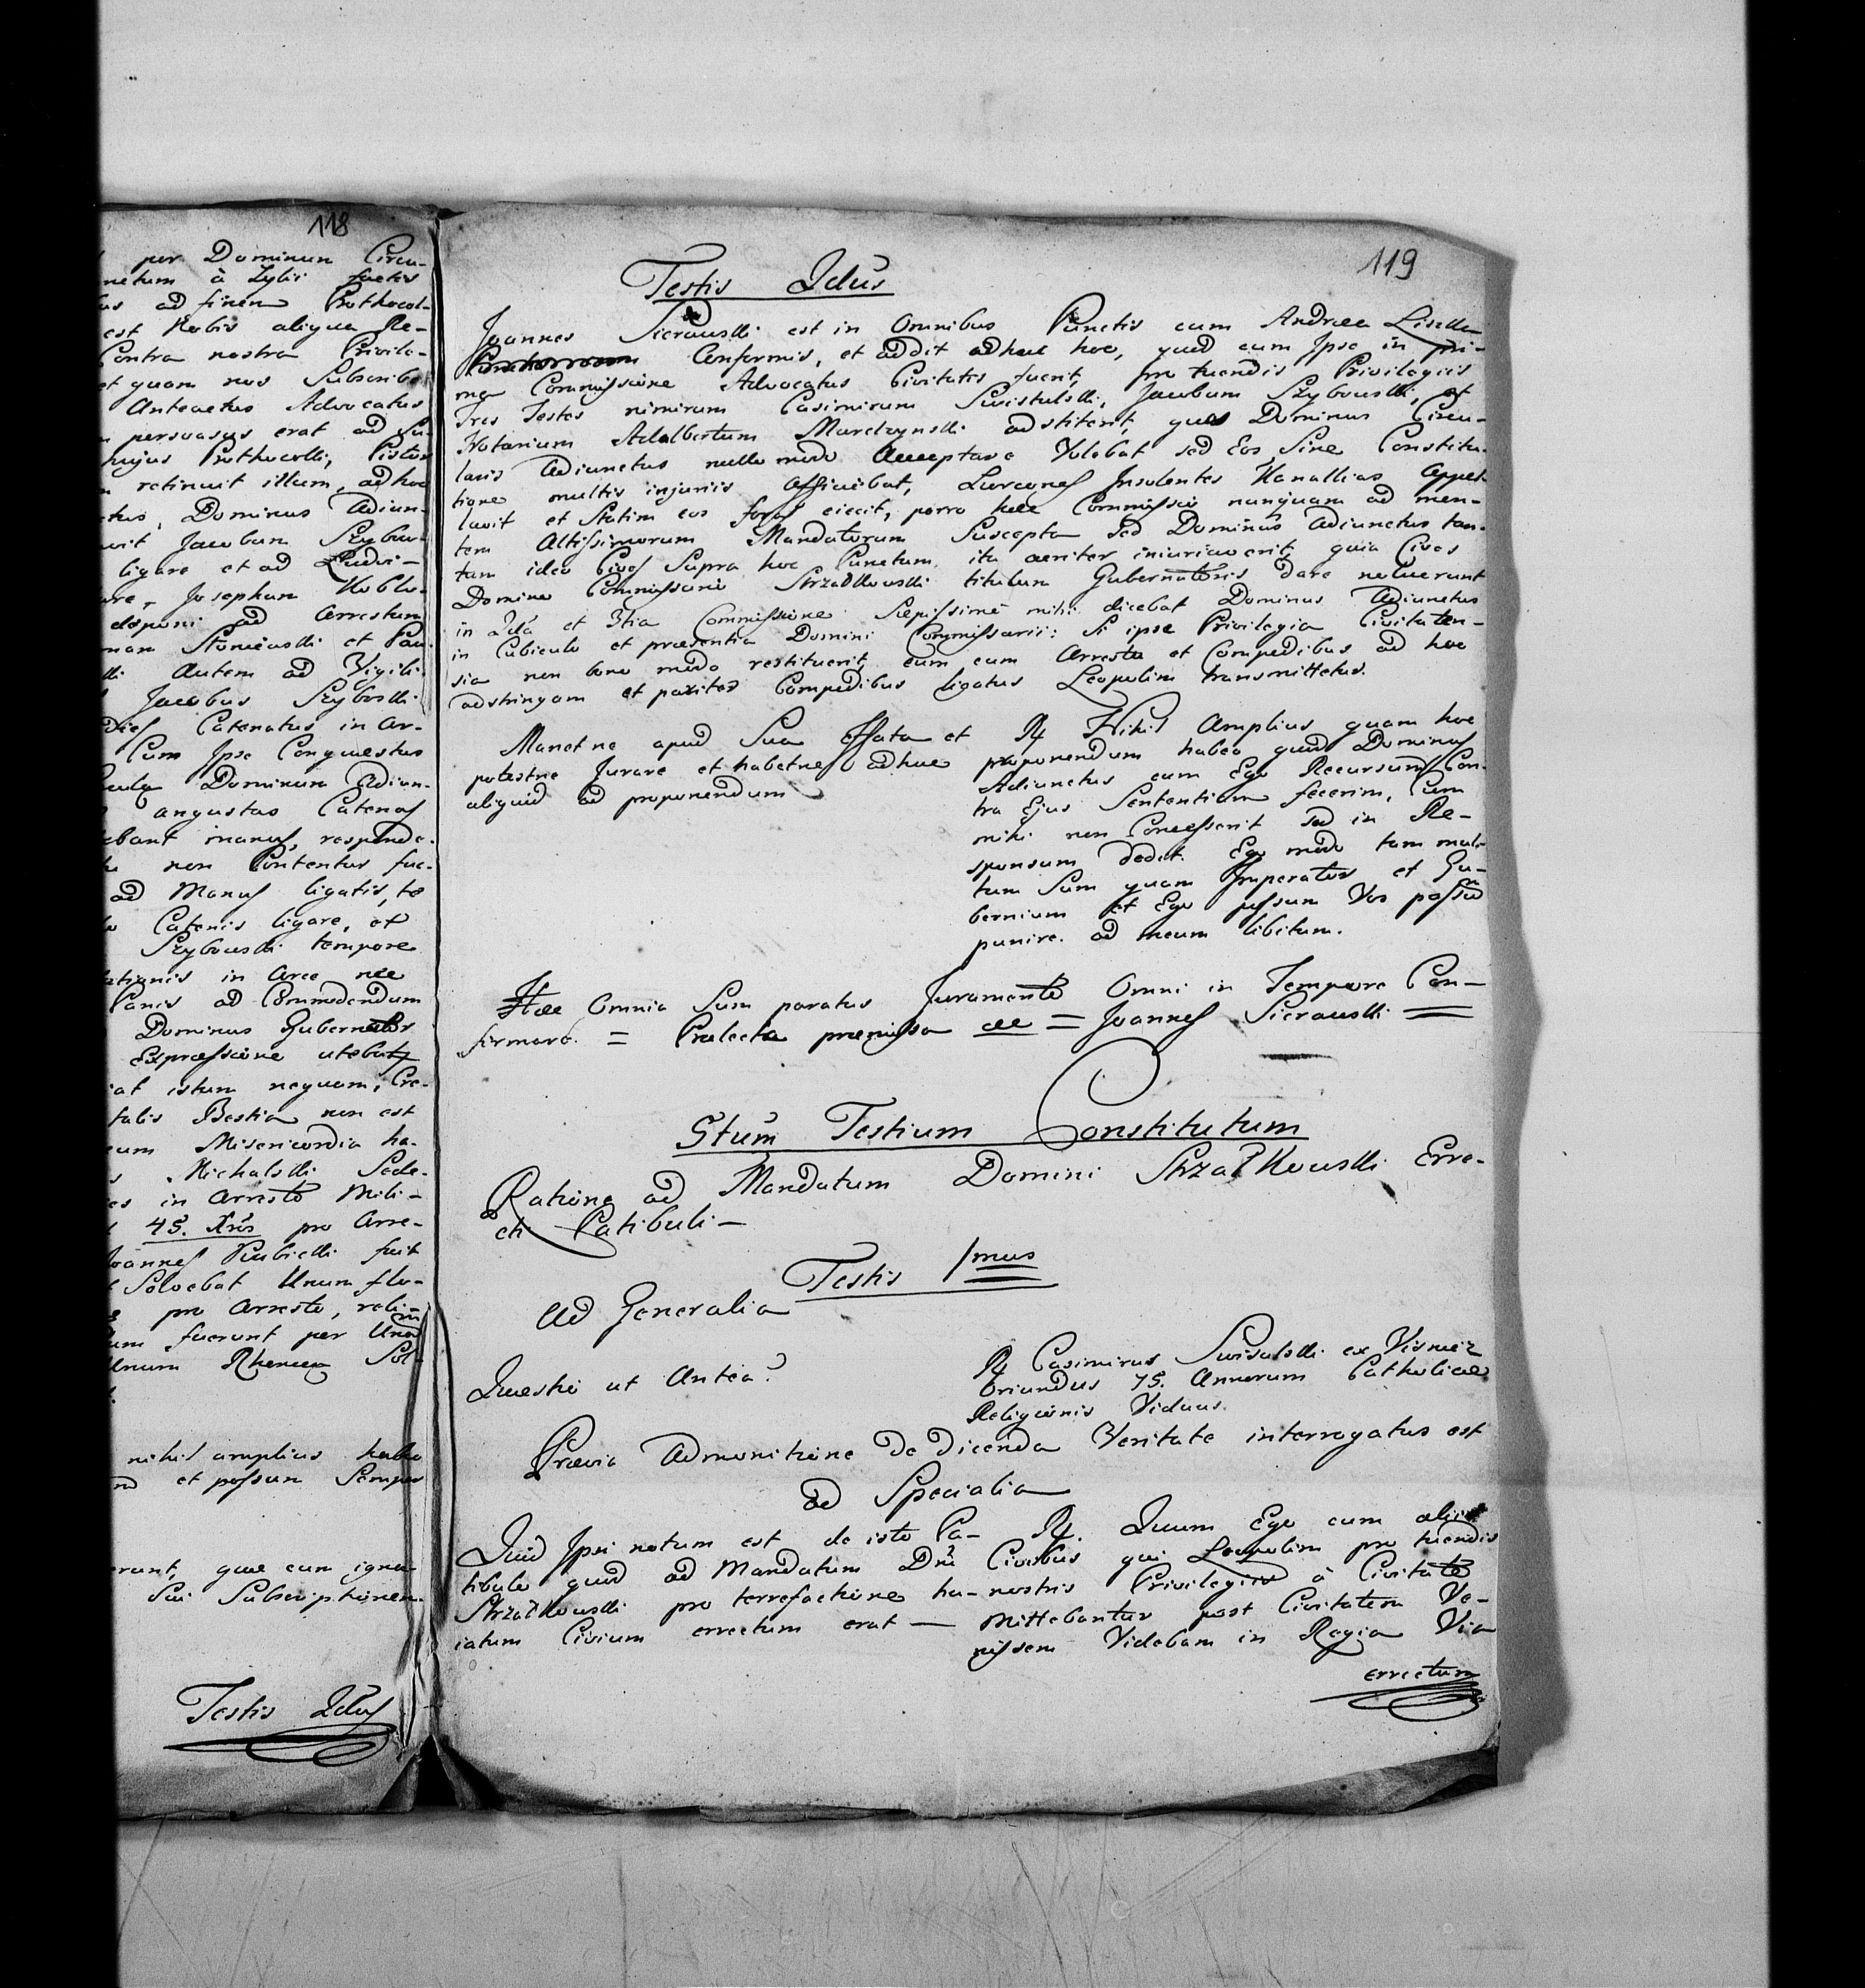 118
per Dominum Circu-
netum à Zylii factis
us ad finem Prothocol-
est Nobis aliqua Re-
Contra nostra Privile-
et quam nos Subscribe
Anteactus Advocatus
persvasus erat ad Su-
hujus Prothocolli, Pistor
retinuit illum, ad hoc
tus, Dominus Adiun-
vit Jacobum Szybow-
ligare et ad Ludvi-
are, Josephum Koblo-
deponi ad Arrestum
Stoniewski et Pau-
lli Autem ad Vigili-
Jacobus Szybowski
Dies Catenatus in Ar-
Cum Ipse Conquestus
Dominum Adiun-
angustas Catenas
ebant manus, responde-
non Contentus fue-
ad Manus ligatis, to
Catenis ligare, et
Szybowski tempore
ationis in Arce nec
Panis ad Commedendum
Dominus Gubernator
Expressione utebatur
at istum nequam, Cre-
talis Bestia non est
cum Misericordia ha-
Michalski Sede-
es in Arresto Mili-
45. Xros pro Arre-
Joannes Piebielli fuit
Solvebat Unum flo-
pro Arresto, reli-
um fuerunt per Unam
Unum Rhenen Sol-
nihil amplius habeo
et possum Semper
erunt, quae cum igna-
Sui Subscriptionem
Testis 2dus
119
Testis 2dus
Joannes Sierawski est in Omnibus Punctis cum Andrea Liselka
Conformis, et addit adhuc hoc, quod cum Ipse in pri-
ma Commissione Advocatus Civitatis fuerit, pro tuendis Privilegiis
Tres Testes nimirum Casimirum Swistulski, Jacobum Szybowski, et
Notarium Adalbertum Marchynski adstiterit, quos Dominus Circu-
laris Adiunctus nullo modo Acceptare Volebat sed Eos Sine Constitu-
tione multis injuriis Afficiebat, Lurcones Insolentes Kanallias Appel-
lavit et Statim eos foras eiecit, porro haec Commissio nunquam ad men-
tem Altissimorum Mandatorum Suscepta sed Dominus Adiunctus tan-
tum ideo Cives Supra hoc Punctum ita acriter iniuriaverit, quia Cives
Domino Commissario Strzałkowski titulum Gubernatoris dare noluerunt
in 2da et 3tia Commissione Saepissimè mihi dicebat Dominus Adiunctus
in Cubiculo et praesentia Domini Commissarii: Si ipse Privilegia Civitaten-
sia non bono modo restituerit, eum cum Arresto et Compedibus ad hoc
adstringam et pariter Compedibus ligatus Leopolim transmittetur.
Manetne apud Sua Effata et
potestne Jurare et habetne adhuc
aliquid ad proponendum
R. Nihil Amplius quam hoc
proponendum habeo quod Dominus
Adiunctus cum Ego Recursum Con-
tra Ejus Sententiam fecerim, Eum
mihi non Concesserit sed in Re-
sponsum dedit. Ego modo tam mul-
tum Sum quam Imperator et Gu-
bernium et Ego possum Vos
punire. ad meum libitum.
Haec Omnia Sum paratus Juramento Omni in Tempore Con-
firmare. = Praelecta praemissa ae = Joannes Sierawski =
5tum Testium Constitutum
Ratione ad Mandatum Domini Strzałkowski Erre-
cti Patibuli —
Testis 1mus
Ad Generalia
Quaestio ut Antea?
R Casimirus Swistulski ex Visnicz
Oriundus 75. Annorum Catholicae
Religionis Viduus.
Praevia Admonitione De Dicenda Veritate interrogatus est
ad Specialia
Quid Ipsi notum est de isto Pa-
tibulo quod ad Mandatum Dni
Strzałkowski pro terrefactione ha-
iatum Civium errectum erat —
R. Quum Ego cum aliis
Civibus qui Leopolim pro tuendis
nostris Privilegiis à Civitate
Mittebantur post Civitatem Ve-
nissem Videbam in Regia Via
errectum